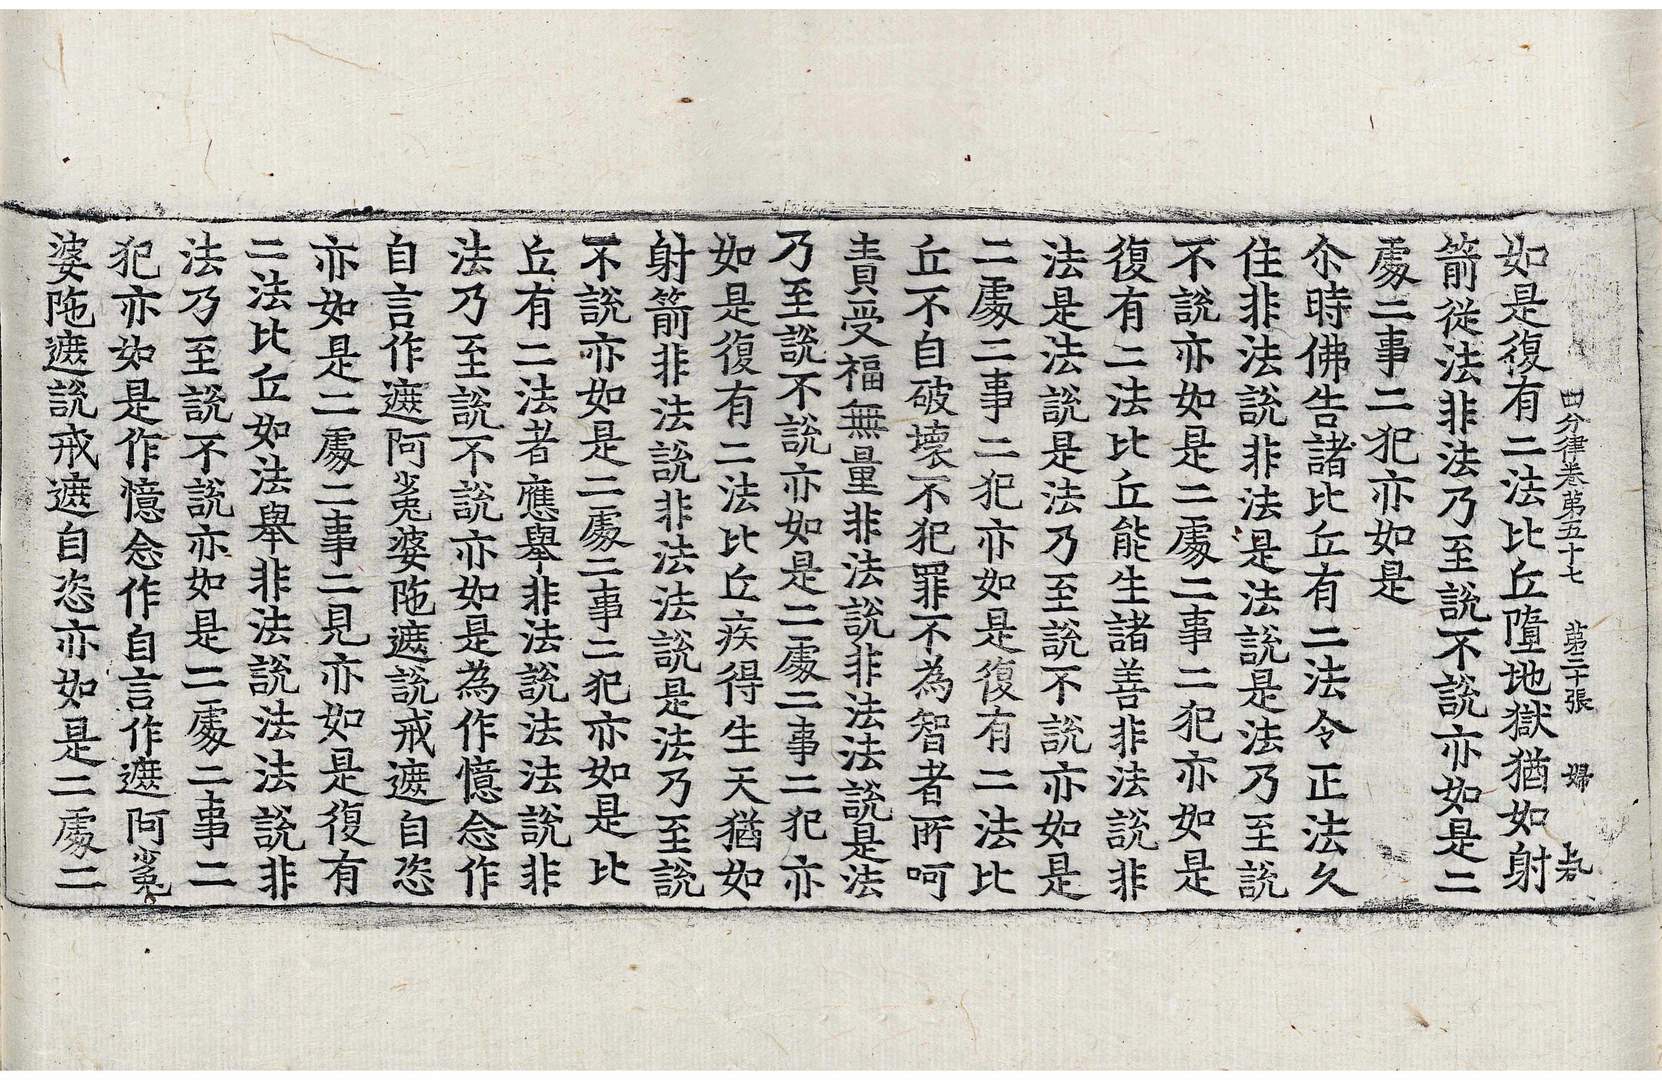 四分律卷第五十七 第二十張 婦
如是復有二法比丘墮地獄猶如射
箭從法非法乃至說不說亦如是二
處二事二犯亦如是
尒時佛告諸比丘有二法令正法久
住非法說非法是法說是法乃至說
不說亦如是二處二事二犯亦如是
復有二法比丘能生諸善非法說非
法是法說是法乃至說不說亦如是
二處二事二犯亦如是復有二法比
丘不自破壞不犯罪不為智者所呵
責受福無量非法說非法法說是法
乃至說不說亦如是二處二事二犯亦
如是復有二法比丘疾得生天猶如
射箭非法說非法法說是法乃至說
不說亦如是二處二事二犯亦如是比
丘有二法者應舉非法說法法說非
法乃至說不說亦如是為作憶念作
自言作遮阿㝹婆陁遮說戒遮自恣
亦如是二處二事二見亦如是復有
二法比丘如法舉非法說法法說非
法乃至說不說亦如是二處二事二
犯亦如是作憶念作自言作遮阿㝹
婆陁遮說戒遮自恣亦如是二處二